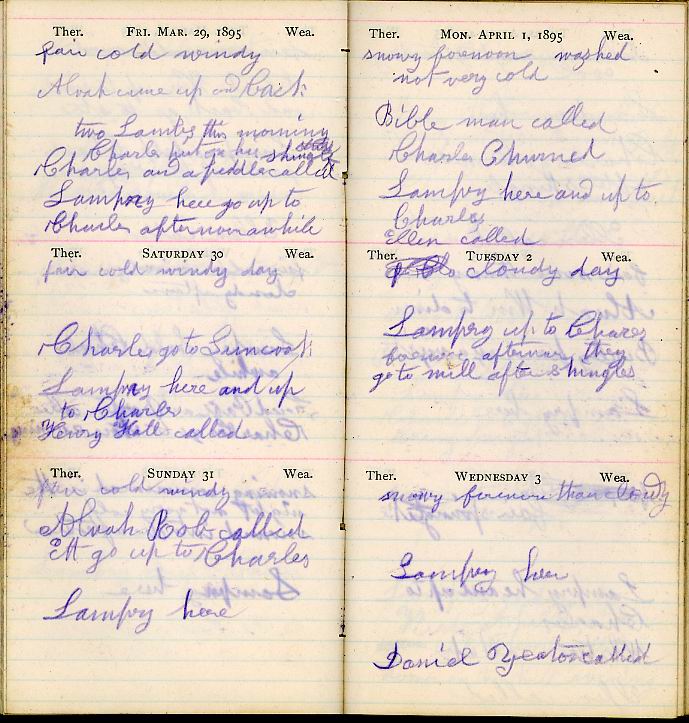 Ther. FRI. MAR. 29, 1895 Wea.
fair cold windy
Alvah came up and back
two Lambs this morning
Charles put on his shingle
Charles and a peddle called
Lamprey here go up to
Charles afternoon awhile
Ther. SATURDAY 30 Wea.
fair cold windy day
Charles go to Suncook
Lamprey here and up
to Charles
Henry Hall called
Ther. SUNDAY 31 Wea.
fair cold windy
Alvah Rob called
Ett go up to Charles
Lamprey here
Ther. MON. APRIL 1, 1895 Wea.
snowy forenoon washed
not very cold
Bible man called
Charles Churned
Lamprey here and up to
Charles
Ellen called
Ther. TUESDAY 2 Wea.
cloudy day
Lamprey up to Chares
forenoon afternoon they
go to mill after shingles
Ther. WEDNESDAY 3 Wea.
snowy forenoon than cloudy
Lamprey here
Daniel Yeaton called